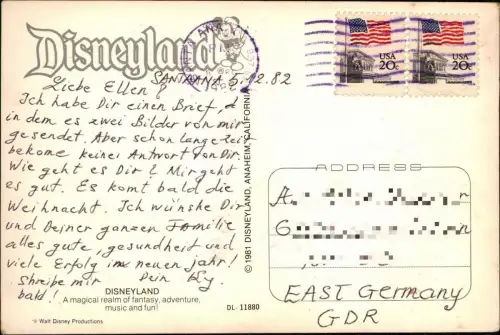 Disneyland
SANTA ANA 5.12.82
Liebe Ellen!
Ich habe Dir einen Brief,
in dem es zwei Bilder von mir
gesendet. Aber schon lange Zeit
bekome keinei Antwort von Dir.
Wie geht es Dir? Mir geht
es gut. Es komt bald die
Weihnacht. Ich wünske Dir
und Deiner ganzen Familie
alles gute, gesundheit und
viele Erfolg im neuen jahr!
Schreibe mir Dein
bald!
DISNEYLAND
A magical realm of fantasy, adventure,
music and fun!
© Walt Disney Productions
DL-11880
©1981 DISNEYLAND, ANAHEIM, CALIFORNIA
USA
20c
USA
20c
ADDRESS
EAST Germany
GDR